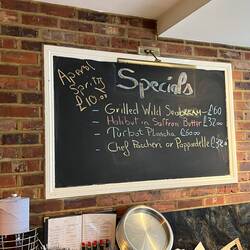 Aperol
Spritz
£10.00
Specials
- Grilled Wild Seabream - £60
- Halibut in Saffron Butter £32.00
- Turbot Plancha £60.00
- Chef Paccheri or Pappardelle